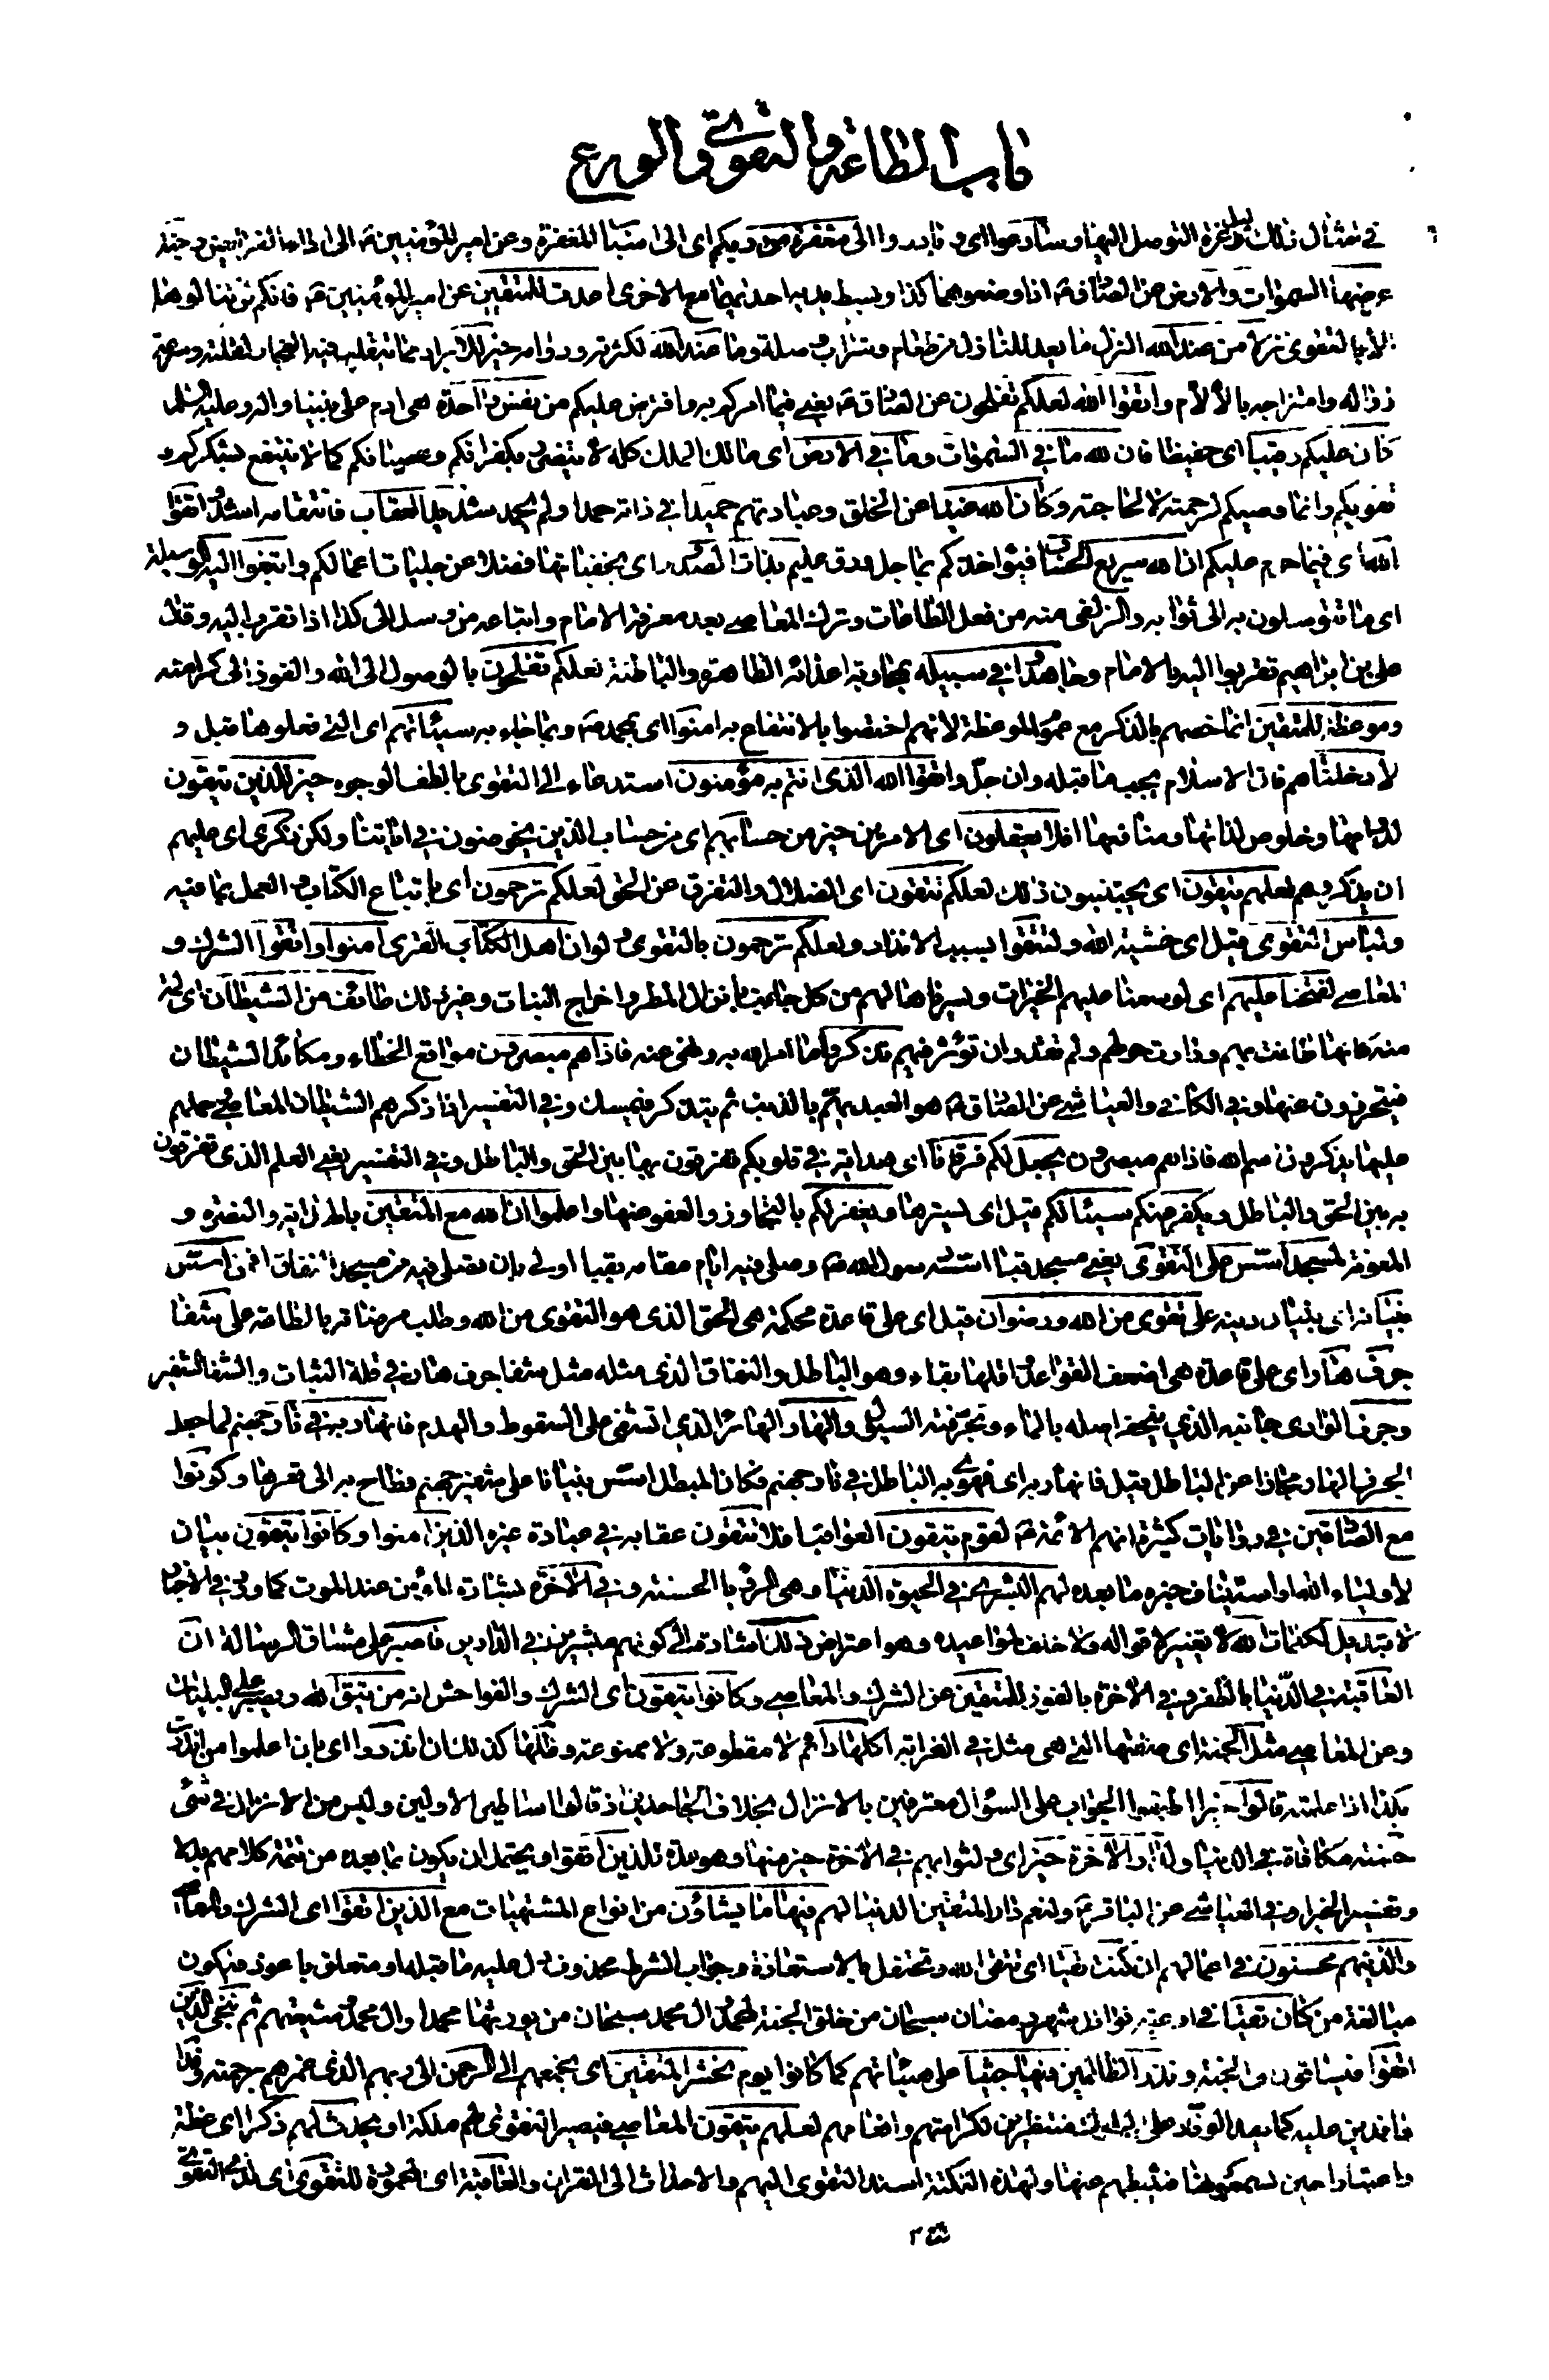 باب الطاعة والتقوى والورع
في امتثال ذلك وعزة التوصل اليها وسارعوا اي وبادروا الى مغفرة من ربكم اى الى اسباب المغفرة وعن امير المؤمنين ع الى اداء الفرايض وجنة
عرضها السموات والارض عن الصادق ع اذا وضعوهما كذا وبسط يديه احديهما مع الاخرى اعدت للمتقين عن امير المؤمنين ع فانكم لن تنالوها
الا بالتقوى نزلا من عند الله النزل ما يعد للنازل من طعام وشراب وصلة وما عند الله لكثرته ودوامه خير للابرار مما يتقلب فيه الفجار لقلته وسرعة
زواله وامتزاجه بالآلام واتقوا الله لعلكم تفلحون عن الصادق ع يعني فيما امركم به وافترض عليكم من نفس واحدة هى ادم على نبينا واله وعليه السلام
كان عليكم رقيبا اى حفيظا فان لله ما في السموات وما في الارض اى مالك الملك كله لا يتضرر بكفرانكم وعصيانكم كما لا ينتفع بشكركم و
تقويكم وانما وصيكم لرحمته لا لحاجته وكان الله غنيا عن الخلق وعبادتهم حميدا في ذاته حمد او لم يحمد شديد العقاب فانتقامه اشد واتقوا
الله اى فيما حرم عليكم ان الله سريع الحساب فيؤاخذكم بما جل ودق عليم بذات الصدور اى بخفياتها فضلا عن جليات اعمالكم وابتغوا اليه الوسيلة
اى ما تتوسلون به الى ثوابه والزلفى منه من فعل الطاعات وترك المعاصي بعد معرفة الامام واتباعه من وسل الى كذا اذا تقرب اليه وقال
على بن ابراهيم تقربوا اليه بالامام وجاهدوا في سبيله بمحاربة اعدائه الظاهرة والباطنة لعلكم تفلحون بالوصول الى الله والفوز الى كرامته
وموعظة للمتقين انما خصهم بالذكر مع عموم الموعظة لانهم اختصوا بالانتفاع به امنوا اى بمحمد ص وبما جاء به سيئاتهم اى التي فعلوها قبل و
لادخلناهم فان الاسلام يجب ما قبله وان جل واتقوا الله الذى انتم به مؤمنون استدعاء الى التقوى بالطف الوجوه خير للذين يتقون
لدوامها وخلوص لذاتها ومنافعها افلا يعقلون اى الامرين خير من حسابهم اى من حساب الذين يخوضون في اياتنا ولكن ذكرى اى عليهم
ان يذكروهم لعلهم يتقون اى يجتنبون ذلك لعلكم تتقون اى الضلال والتفرق عن الحق لعلكم ترحمون اى باتباع الكتاب والعمل بما فيه
ولباس التقوى قيل اى خشية الله ولتتقوا بسبب الانذار ولعلكم ترحمون بالتقوى ولو ان اهل الكتاب القرى امنوا واتقوا الشرك و
المعاصي لفتحنا عليهم اى لوسعنا عليهم الخيرات ويسرناها لهم من كل جانب بانزال المطر واخراج النبات وغير ذلك طائف من الشيطان اى لمة
منه كانها طافت بهم ودارت حولهم ولم تقدر ان تؤثر فيهم تذكروا ما امر الله به ونهى عنه فاذا هم مبصرون مواقع الخطاء ومكائد الشيطان
فيتحرزون عنها وفي الكافي والعياشي عن الصادق ع هو العبد يهم بالذنب ثم يتذكر فيمسك وفي التفسير اذا ذكرهم الشيطان المعاصي وحملهم
عليها يذكرون اسم الله فاذا هم مبصرون يجعل لكم فرقانا اى هداية في قلوبكم تفرقون بها بين الحق والباطل وفي التفسير يعني العلم الذى تفرقون
به بين الحق والباطل ويكفر عنكم سيئاتكم قيل اى يسترها ويغفر لكم بالتجاوز والعفو عنها واعلموا ان الله مع المتقين بالحراسة والنصرة و
المعونة لمسجد اسس على التقوى يعني مسجد قبا اسسه رسول الله ص وصلى فيه ايام مقامه بقبا اولى بان يصلى فيه من مسجد النفاق افمن اسس
بنيانه اى بنيان دينه على تقوى من الله ورضوان قيل اى على قاعدة محكمة هى الحق الذى هو التقوى من الله وطلب مرضاته بالطاعة على شفا
جرف هار اى على قاعدة هى اضعف القواعد واقلها بقاء وهو الباطل والنفاق الذى مثله مثل شفا جرف هار في قلة الثبات والشفا الشفير
وجرف الوادى جانبه الذي ينحفر اصله بالماء وتجرفه السيول والهار الهائر الذي اشفى على السقوط والهدم فانهار به في نار جهنم لما جعل
الجرف الهار مجازا عن الباطل قيل فانهار به اى فهوى به الباطل في نار جهنم فكان المبطل اسس بنيانا على شفير جهنم فطاح به الى قعرها وكونوا
مع الصادقين في روايات كثيرة انهم الائمة ع لقوم يتقون العواقب افلا تتقون عقابه في عبادة غيره الذين امنوا وكانوا يتقون بيان
لاولياء الله او استيناف خبره ما بعده لهم البشرى في الحيوة الدنيا وهى الرؤيا الحسنة وفي الاخرة بشارة المؤمن عند الموت كما ورد في الاخبار
لا تبديل لكلمات الله لا تغيير لاقواله ولا خلف لمواعيده وهو اعتراض ذلك اشارة الى كونهم مبشرين في الدارين فاصبر على مشاق الرسالة ان
العاقبة في الدنيا بالظفر وفي الاخرة بالفوز للمتقين عن الشرك والمعاصي وكانوا يتقون اى الشرك والفواحش انه من يتق الله ويصبر على البليات
وعن المعاصي مثل الجنة اى صفتها التي هى مثل في الغرابة اكلها دائم لا مقطوعة ولا ممنوعة وظلها كذلك ان انذروا اى بان اعلموا من انذرت
بكذا اذا علمته قالوا خيرا اطبقوا الجواب على السؤال معترفين بالانزال بخلاف الجاحدين اذ قالوا اساطير الاولين وليس من الانزال في شئ
حسنة مكافاة في الدنيا ولدار الاخرة خير اى ولثوابهم في الاخرة خير منها وهو عدة للذين اتقوا ويحتمل ان يكون بما بعده من تتمة كلامهم بدلا
وتفسيرا لخيرا وفي العياشي عن الباقر ع ولنعم دار المتقين الدنيا لهم فيها ما يشاؤن من انواع المشتهيات مع الذين اتقوا اى الشرك والمعاصي
والذين هم محسنون في اعمالهم ان كنت تقيا اى تتقى الله وتحتفل بالاستعاذة وجواب الشرط محذوف دل عليه ما قبله او متعلق باعوذ فيكون
مبالغة من كان تقيا في ادعية نوافل شهر رمضان سبحان من خلق الجنة لمحمد وال محمد سبحان من يورثها محمدا وال محمد وشيعتهم ثم ننجى الذين
اتقوا فيساقون الى الجنة ونذر الظالمين فيها جثيا على هيئاتهم كما كانوا يوم نحشر المتقين اى نجمعهم الى الرحمن الى ربهم الذى غمرهم برحمته وفدا
وافدين عليه كما يفد الوفاد على الملوك منتظرين لكرامتهم وانعامهم لعلهم يتقون المعاصي فيصير التقوى لهم ملكة او يحدث لهم ذكرا اى عظة
واعتبارا حين يسمعونها فتثبطهم عنها ولهذه النكتة اسند التقوى اليهم والاحداث الى القران والعاقبة اى المحمودة للتقوى اى لذوى التقوى